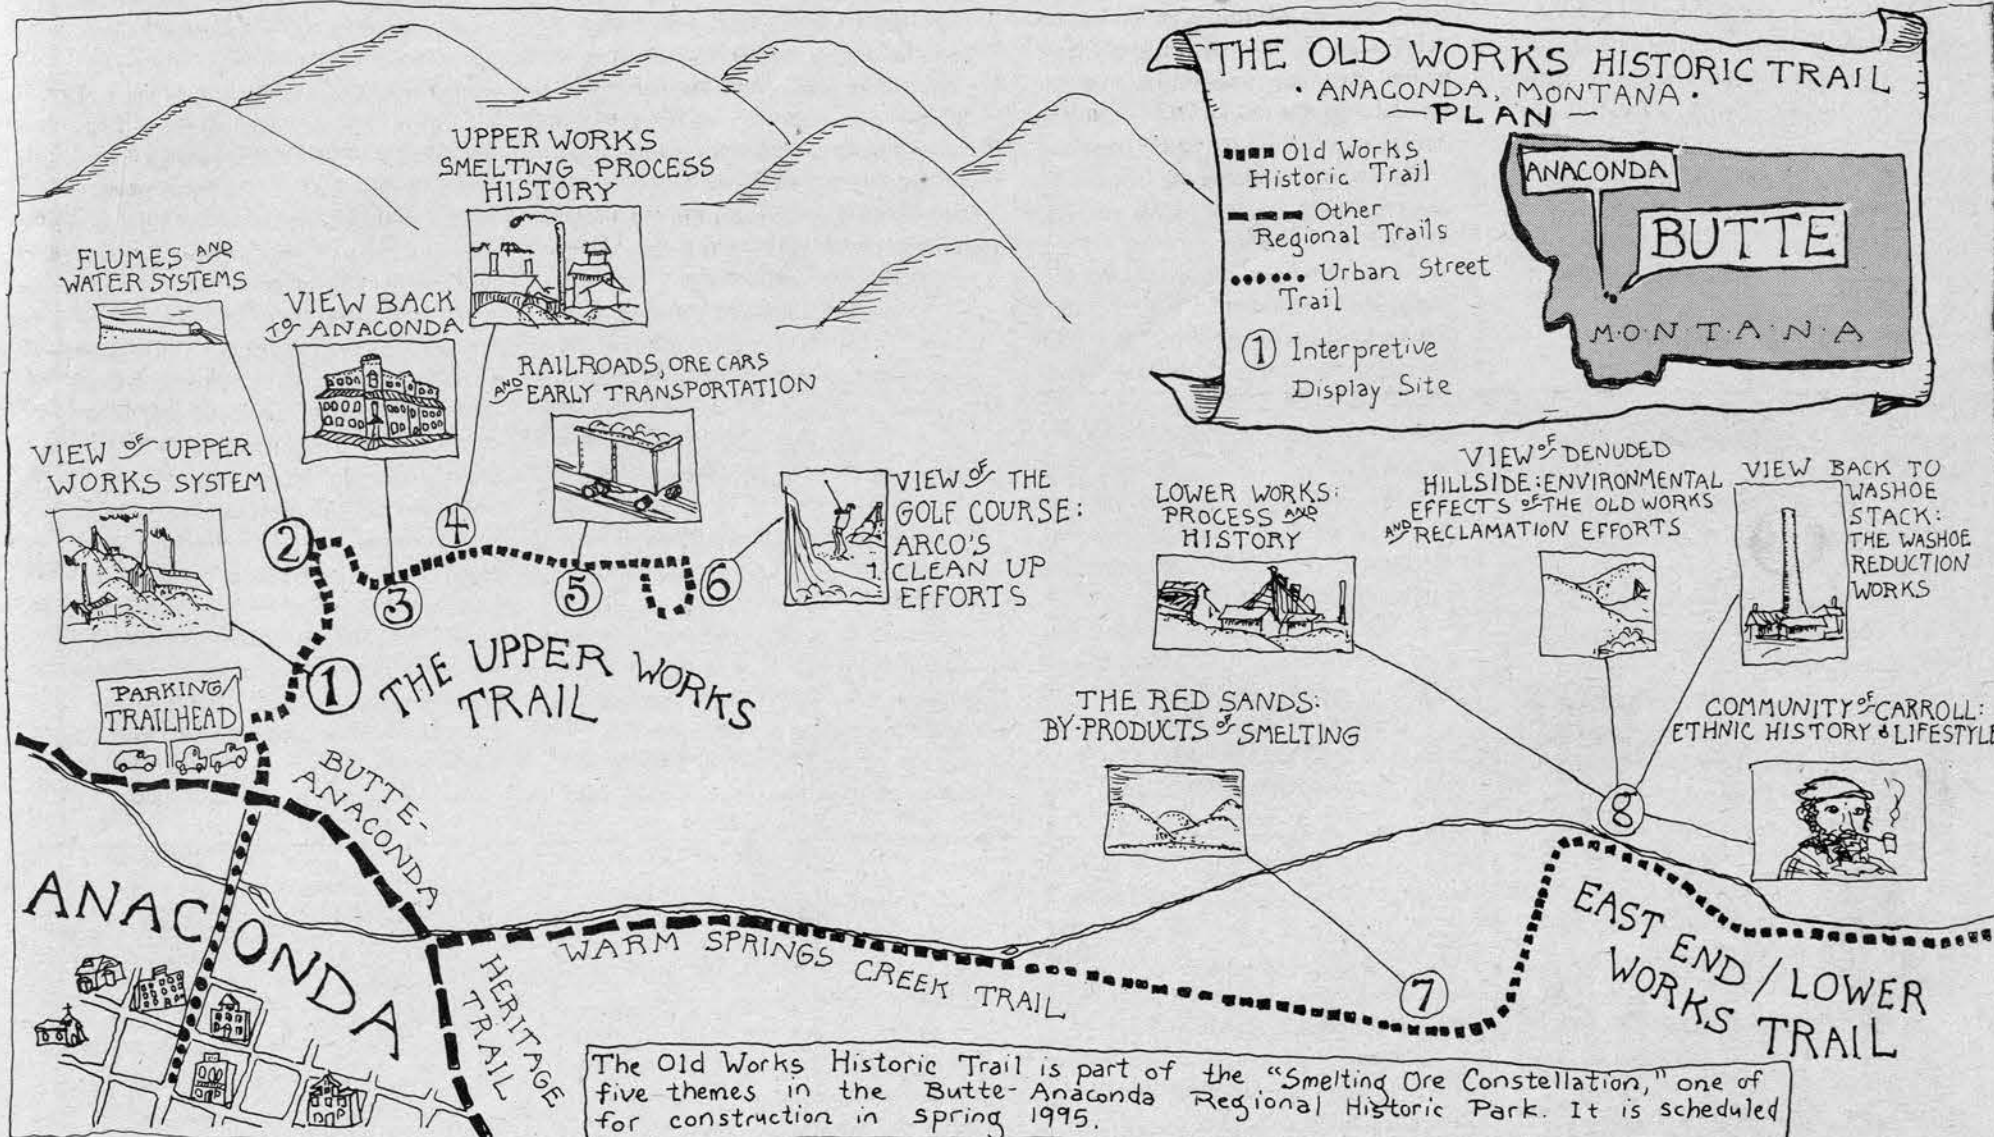 THE OLD WORKS HISTORIC TRAIL
· ANACONDA, MONTANA ·
— PLAN —
Old Works
Historic Trail
Other
Regional Trails
Urban Street
Trail
1 Interpretive
Display Site
ANACONDA
BUTTE
M·O·N·T·A·N·A
UPPER WORKS
SMELTING PROCESS
HISTORY
FLUMES AND
WATER SYSTEMS
VIEW BACK
TO ANACONDA
RAILROADS, ORE CARS
AND EARLY TRANSPORTATION
VIEW OF UPPER
WORKS SYSTEM
VIEW OF THE
GOLF COURSE:
ARCO'S
CLEAN UP
EFFORTS
2
3
4
5
6
1
THE UPPER WORKS
TRAIL
PARKING/
TRAILHEAD
LOWER WORKS:
PROCESS AND
HISTORY
VIEW OF DENUDED
HILLSIDE: ENVIRONMENTAL
EFFECTS OF THE OLD WORKS
AND RECLAMATION EFFORTS
VIEW BACK TO
WASHOE
STACK:
THE WASHOE
REDUCTION
WORKS
THE RED SANDS:
BY-PRODUCTS OF SMELTING
COMMUNITY OF CARROLL:
ETHNIC HISTORY & LIFESTYLE
8
7
BUTTE-
ANACONDA
HERITAGE
TRAIL
ANACONDA
WARM SPRINGS CREEK TRAIL
EAST END / LOWER
WORKS TRAIL
The Old Works Historic Trail is part of the "Smelting Ore Constellation," one of
five themes in the Butte-Anaconda Regional Historic Park. It is scheduled
for construction in spring 1995.